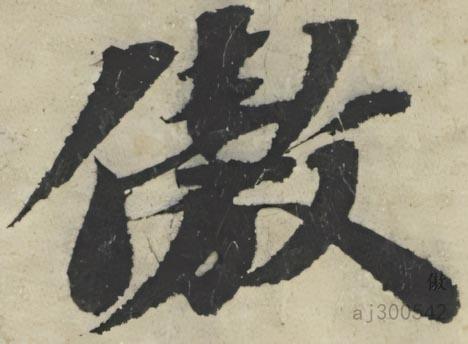 傲
傲
aj300542